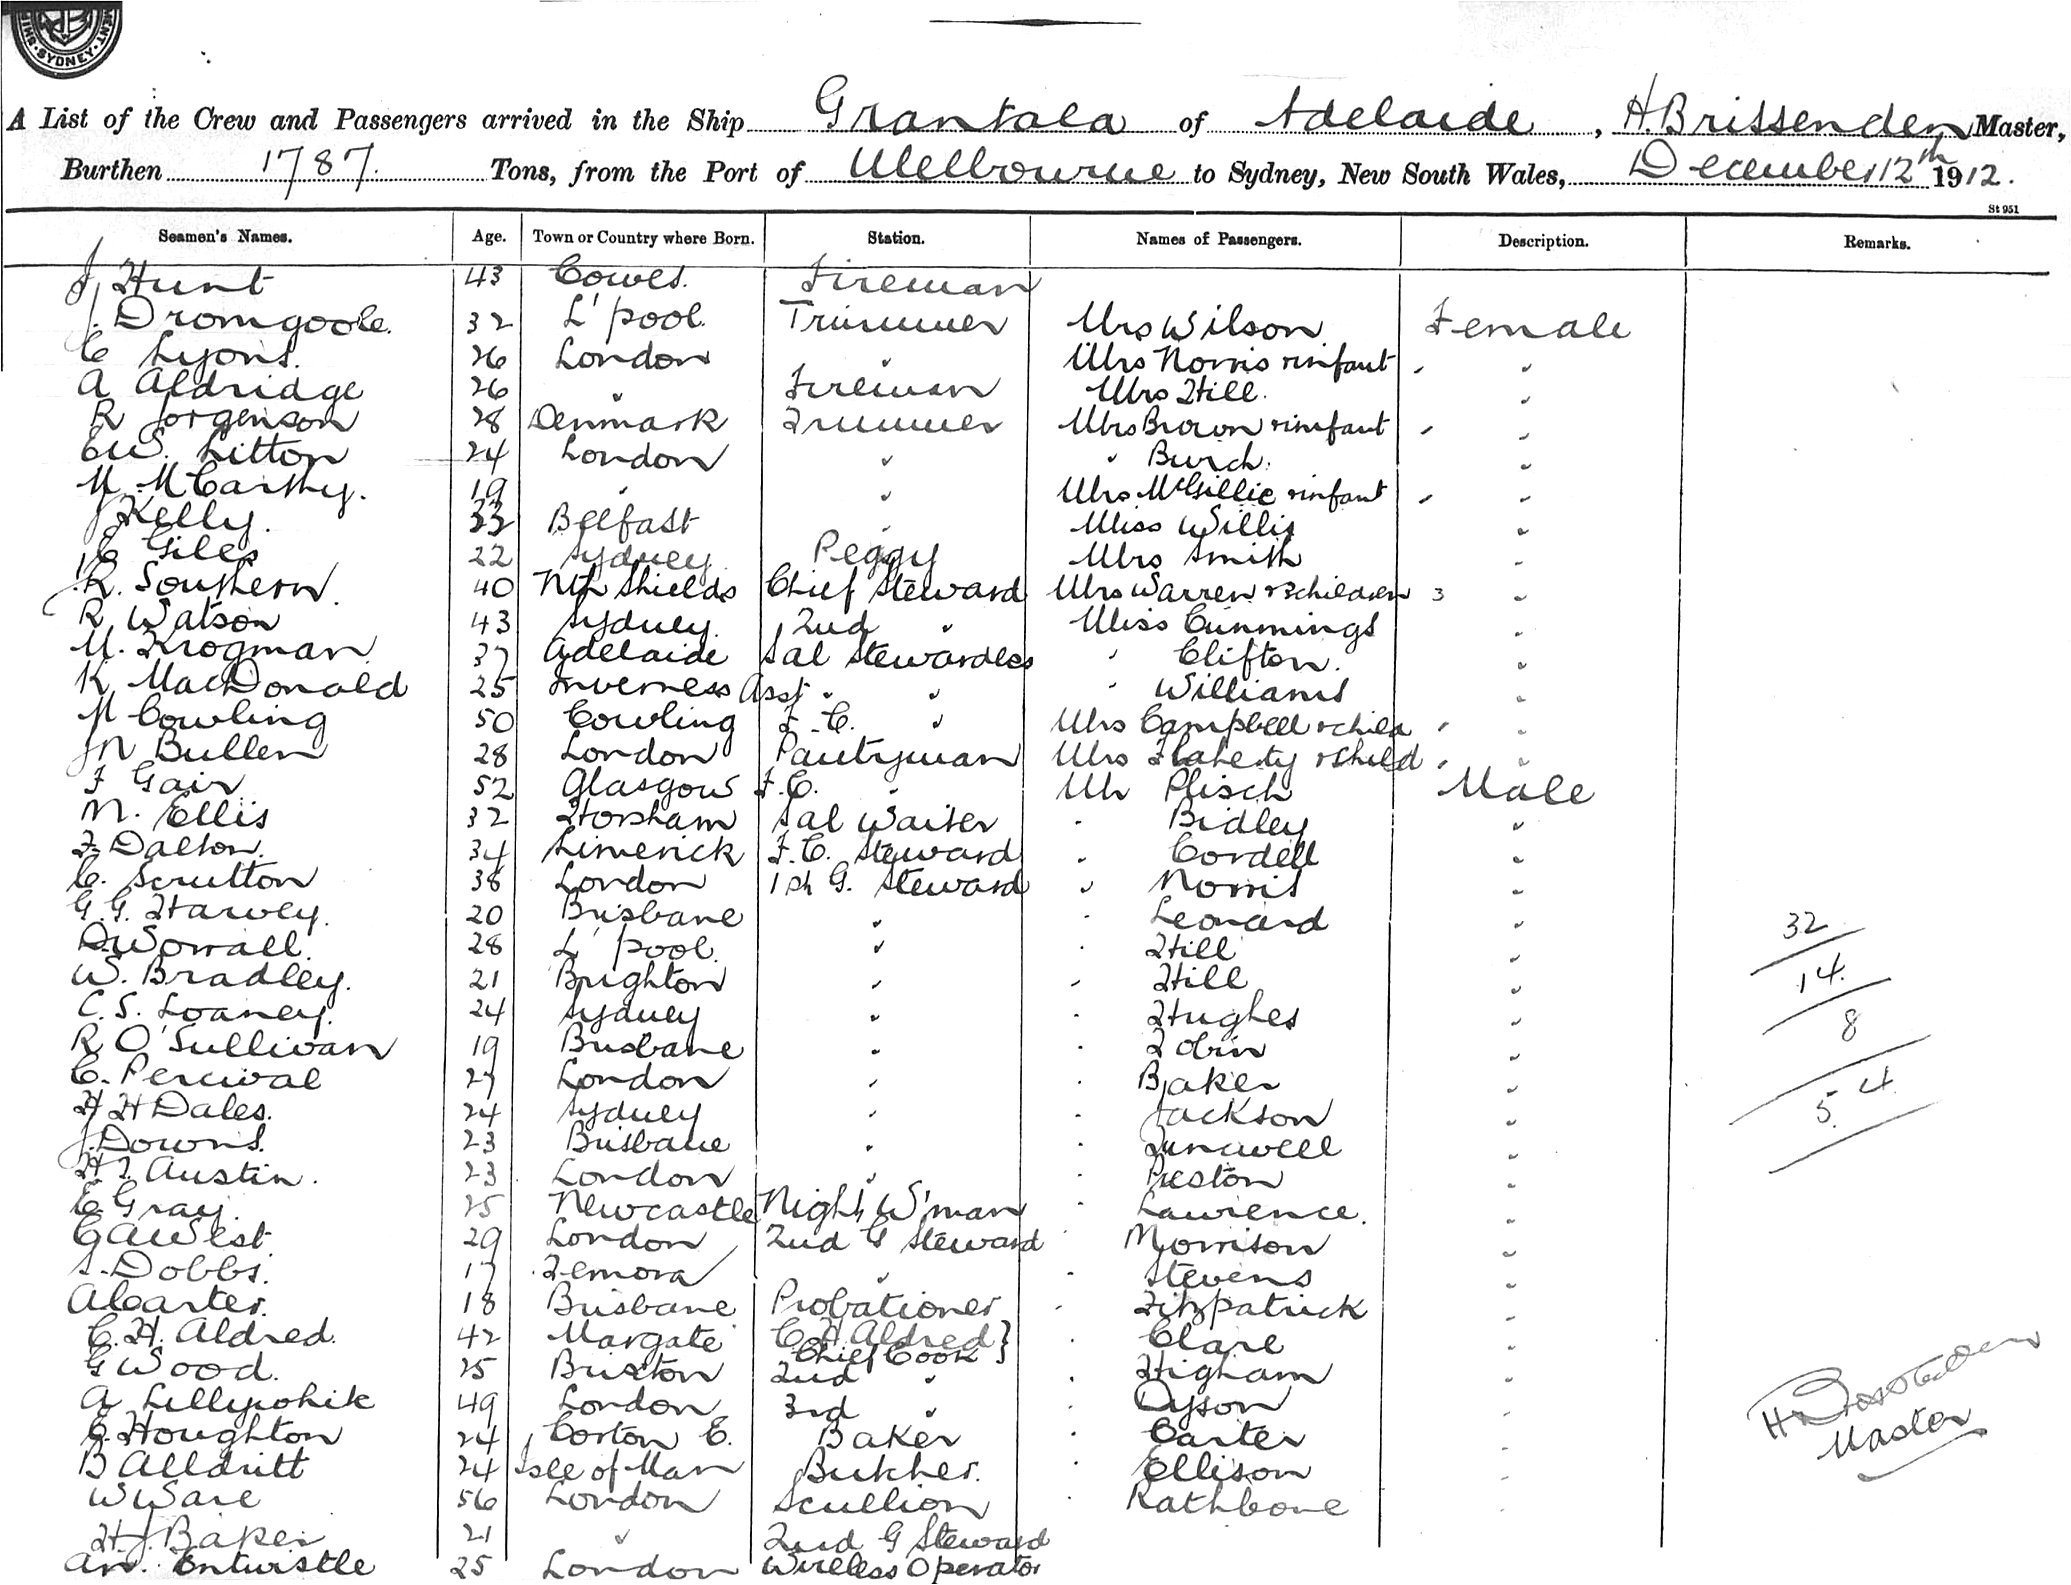 SYDNEY
A List of the Crew and Passengers arrived in the Ship Grantala of Adelaide, H. Brissenden Master,
Burthen 1787. Tons, from the Port of Melbourne to Sydney, New South Wales, December 12th 1912.
St 951
Seamen's Names. Age. Town or Country where Born. Station. Names of Passengers. Description. Remarks.
J Hunt 43 Cowes. Fireman
J. Dromgoole. 32 L'pool. Trimmer Mrs Wilson Female
C Lyons. 26 London " Mrs Norris & infant " "
A Aldridge 26 " Fireman Mrs Hill. "
R Jorgenson 28 Denmark Trimmer Mrs Brown & infant " "
E W. Litton 24 London " " Burch. "
M. McCarthy. 19 " " Mrs McGillie & infant " "
J Kelly. 33 Belfast " Miss Willis "
E Giles 22 Sydney Peggy Mrs Smith "
R. Southern. 40 Nth Shields Chief Steward Mrs Warren & children 3 "
R. Watson 43 Sydney. 2nd " Miss Cummings "
M. Krogman 37 Adelaide Sal Stewardess " Clifton. "
K MacDonald 25 Inverness Asst " " " Williams "
M Cowling 50 Cowling F.C. " Mrs Campbell & child " "
J N Bullen 28 London Pantryman Mrs Flaherty & child " "
F Gair 52 Glasgow F.C. " Mr Plisch Male
N. Ellis 32 Horsham Sal Waiter " Bidley "
F. Dalton. 34 Limerick F.C. Steward " Cordell "
C. Scrutton 38 London 1st G. Steward " Norris "
G. G. Harvey. 20 Brisbane " " Leonard "
D. Worrall. 28 L'pool. " " Hill "
32
W. Bradley. 21 Brighton " " Hill "
14.
C. S. Loaney. 24 Sydney " " Hughes "
8
R O'Sullivan 19 Brisbane " " Tobin "
C. Percival 27 London " " Baker "
54
H H Dales. 24 Sydney " " Jackson "
J. Downs. 23 Brisbane " " "
H. T. Austin. 23 London " " Preston "
E Gray. 25 Newcastle Night W'man " Lawrence. "
G A West 29 London 2nd G Steward Morrison "
S. Dobbs. 17 Temora " " Stevens "
A Carter. 18 Brisbane Probationer " Fitzpatrick "
C. H. Aldred. 42 Margate C. H. Aldred } " Clare "
Chief Cook }
G Wood. 25 Brixton 2nd " " Higham "
A 49 London 3rd " " Dyson "
E. Houghton 24 Corton E. Baker " Carter "
B Alldritt 24 Isle of Man Butcher. " Ellison "
W Ware 56 London Scullion " Rathbone "
H. J. Baker 21 " 2nd G Steward
Entwistle 25 London Wireless Operator
H Brissenden
Master